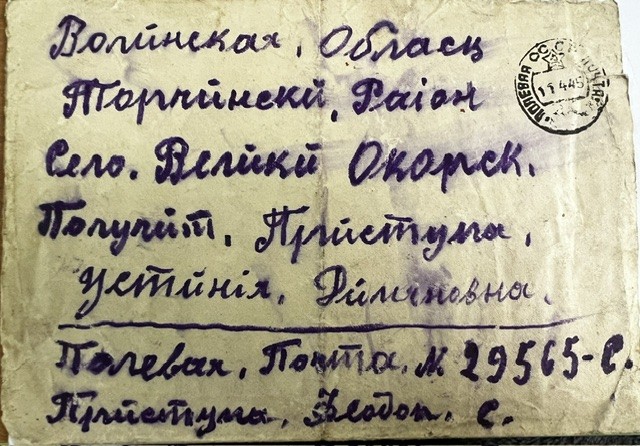 Волинская. Обласц
Торчински, Раіон
Село. Велики Окорск.
Получит. Приступа.
Устинія. Римановна.
Полевая. Почта. № 29565-С.
Приступа. Федоп. С.
ПОЛЕВАЯ ПОЧТА
11.4.45